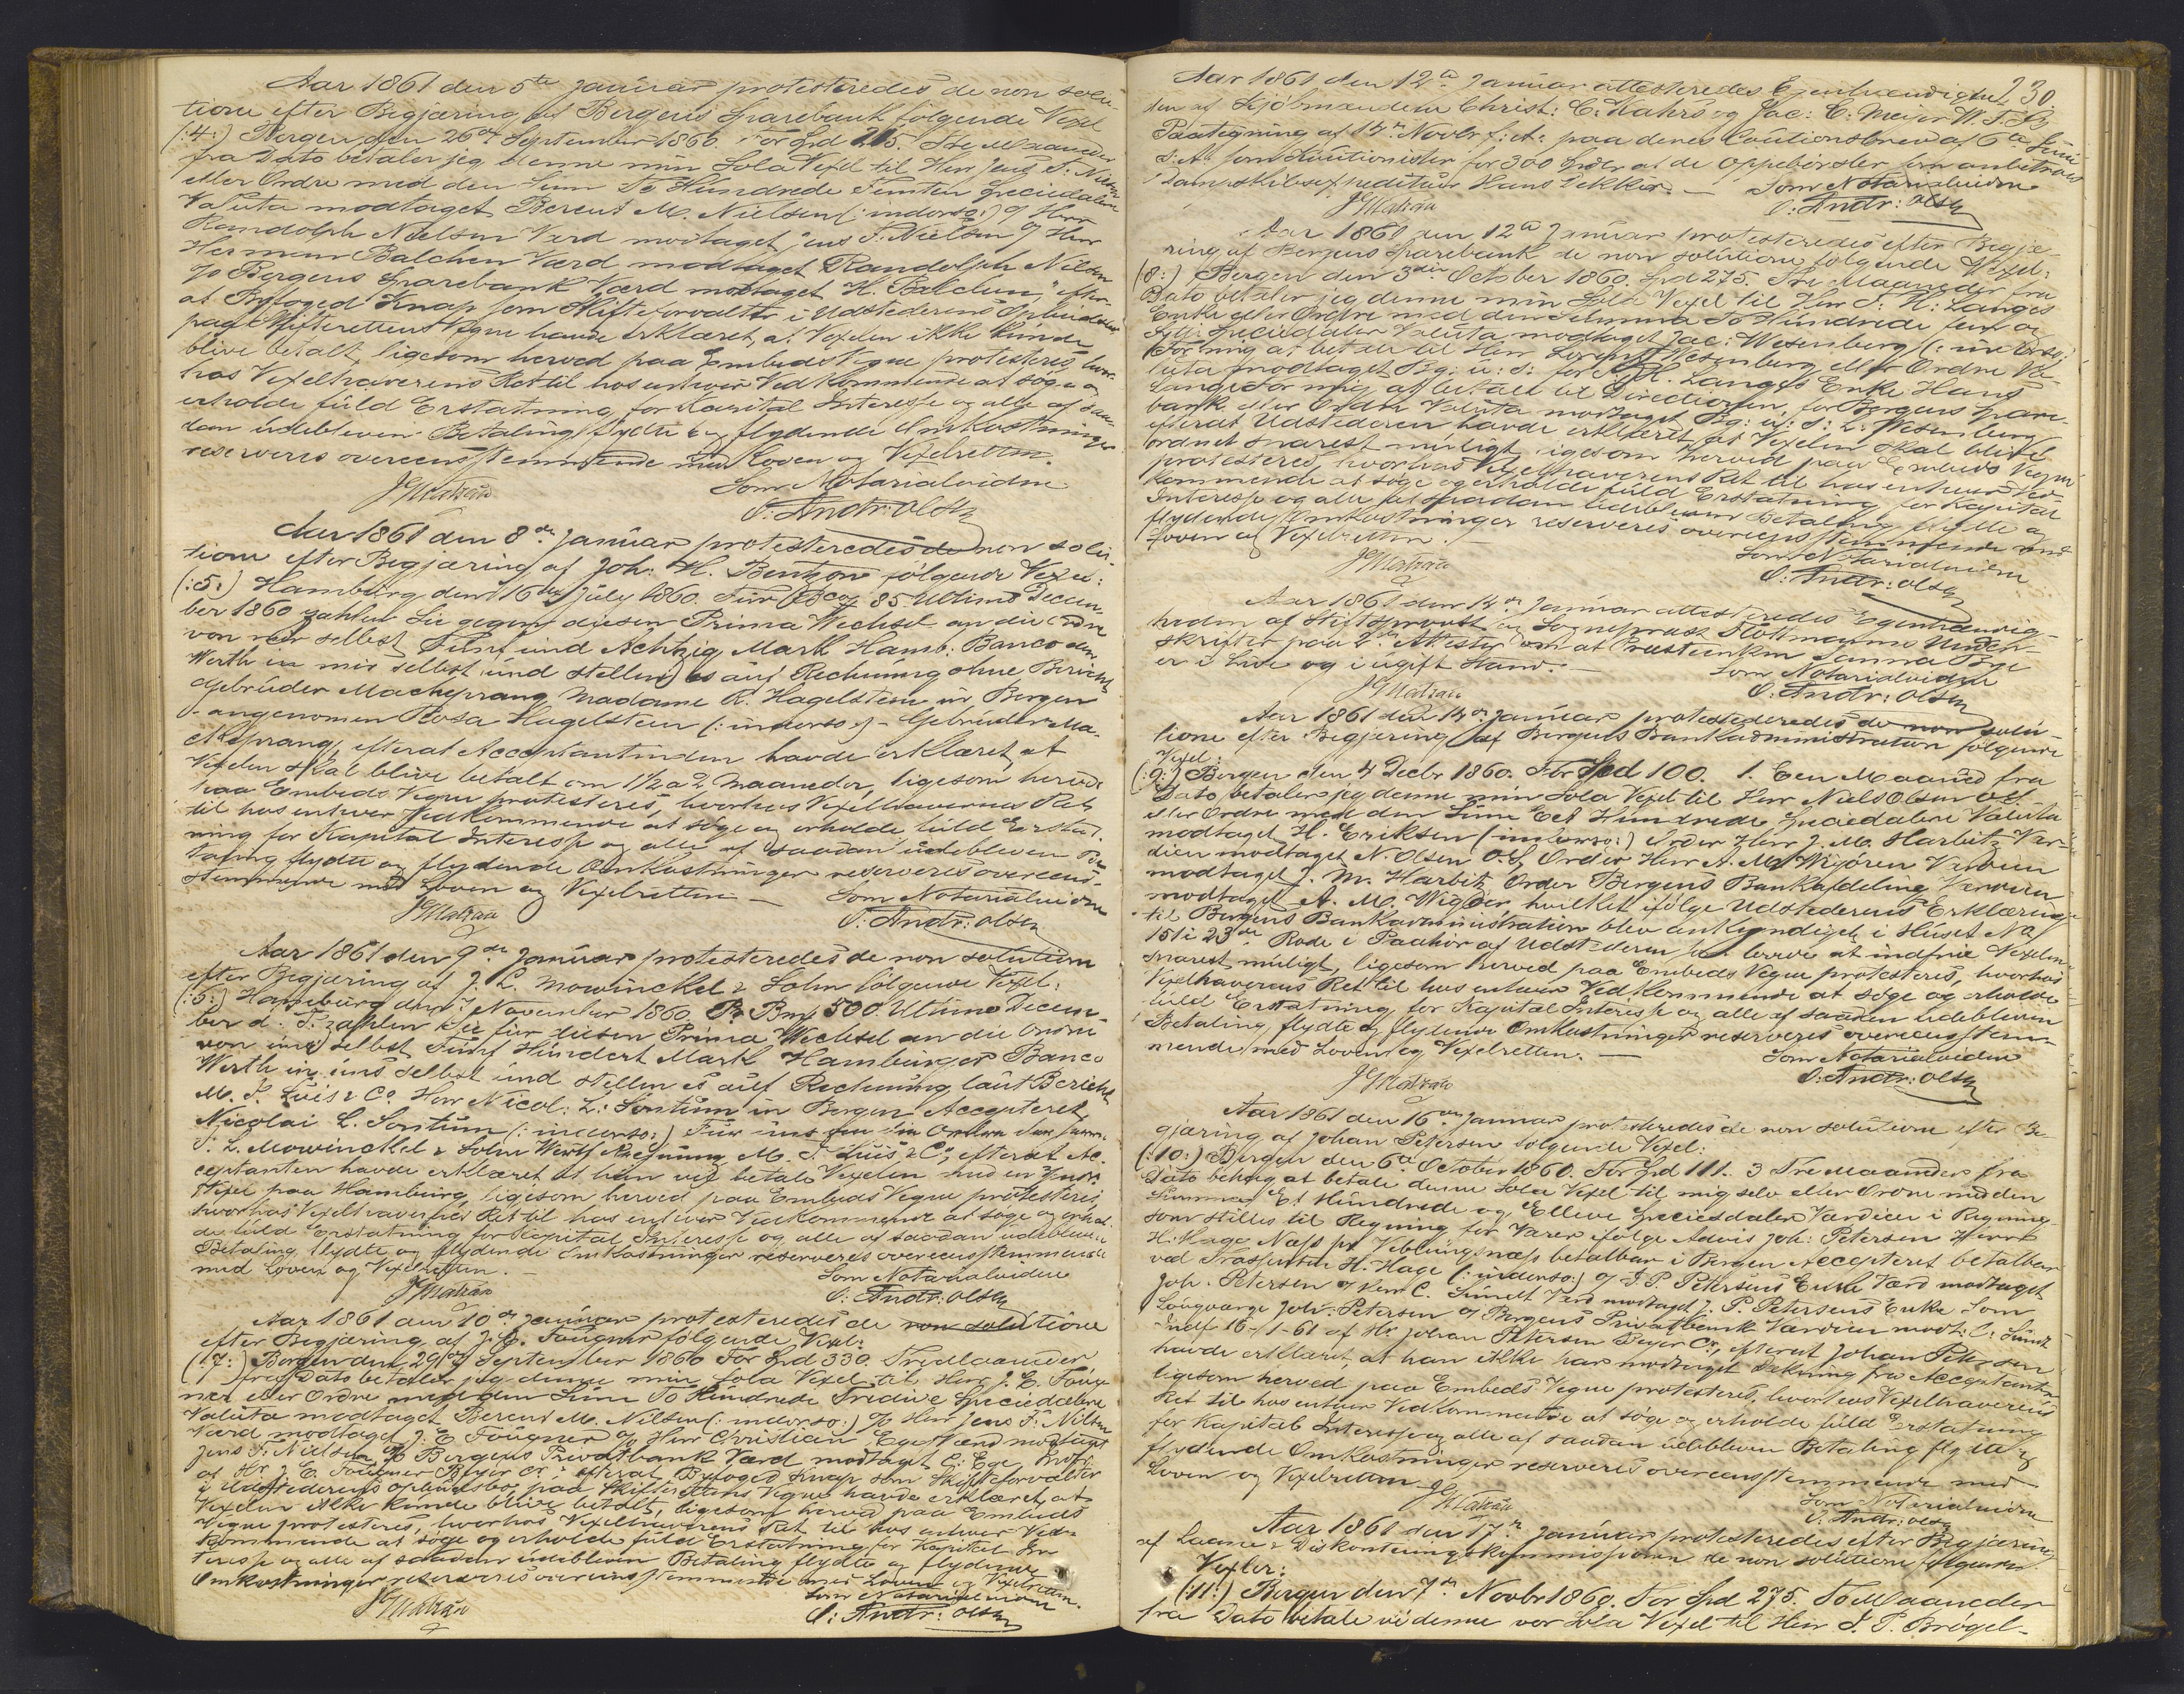 Aar 1861 den 5te Januar protesteredes de non solu-
tione efter Begjæring af Bergens Sparebank følgende Vexel
(:4:) Bergen den 26de September 1860. For Spd 215. Tre Maaneder
fra Dato betaler jeg denne min Sola Vexel til Herr Jens F. Nielsen
eller Ordre med den Sum To Hundrede Femten Speciedaler
Valuta modtaget Berent M. Nielsen (:indorso:) Herr
Randolph Nielsen Værd modtaget Jens F. Nielsen Herr
Herman Balchen Værd modtaget Randolph Nilsen
To Bergens Sparebank Værd modtaget H. Balchen, efter-
at Byfoged Knap som Skifteforvalter i Udstederens Opbudsbo
paa Skifterettens Vegne havde erklæret, at Vexelen ikke kunde
blive betalt, ligesom herved paa Embeds Vegne protesteres, hvor-
hos Vexelhaverens Ret til hos enhver Vedkommende at søge og
erholde fuld Erstatning for Kapital Interesse og alle af saa-
dan udebleven Betaling flydte og flydende Omkostninger
reserveres overeensstemmende med Loven og Vexelretten.
Som Notarialvidne
J Matzau O: Andr: Olsen
Aar 1861 den 8de Januar protesteredes de non solu-
tione efter Begjæring af Joh: H. Bentzon følgende Vexel:
(:5:) Hamburg den 16 July 1860. Für Bco 85 Ultimo Decem-
ber 1860 zahlen Sie gegen diesen Prima Wechsel an die Ordre
von mir selbst Fünf und Achtzig Mark Hamb: Banco den
Werth in mir selbst und stellen es auf Rechnung ohne Bericht
Gebrüder Macheprang Madame R. Hagelstein in Bergen
angenomen Rosa Hagelstein (:indorso:) Gebrüder Ma-
cheprang, efterat Acceptantinden havde erklæret, at
Vexelen skal blive betalt om 1½ a 2 Maaneder, ligesom herved
paa Embeds Vegne protesteres, hvorhos Vexelhavernes Ret
til hos enhver Vedkommende at søge og erholde fuld Erstat-
ning for Kapital Interesse og alle af saadan udebleven Be-
taling flydte og flydende Omkostninger reserveres overeens-
stemmende med Loven og Vexelretten. Som Notarialvidne
J Matzau O: Andr: Olsen
Aar 1861 den 9de Januar protesteredes de non solutione
efter Begjæring af J. L. Mowinckel & Søhn følgende Vexel:
(:6:) Hamburg den November 1860. Pr Bm 500. Ultimo Decem-
ber d. J. zahlen Sie für diesen Prima Wechsel an die Ordre
von uns selbst Fünf Hundert Mark Hamburger Banco
Werth in uns selbst und stellen es auf Rechnung laut Bericht
M. J. Luis & Co. Herr Nicol: L: Sontum in Bergen Accepteret
Nicolai L. Sontum (:indorso:) Für uns an die Ordre der Herren
J. L. Mowinckel & Sohn Werth Rechnung M. J. Luis & Co, efterat Ac-
ceptanten havde erklæret at han vil betale Vexelen med en
Vexel paa Hamburg, ligesom herved paa Embeds Vegne protesteres
hvorhos Vexelhavernes Ret til hos enhver Vedkommende at søge og erhol-
de fuld Erstatning for Kapital Interesse og alle af saadan udebleven
Betaling flydte og flydende Omkostninger reserveres overeensstemmende
med Loven og Vexelretten. Som Notarialvidne
J Matzau O: Andr: Olsen
Aar 1861 den 10de Januar protesteredes de non solutione
efter Begjæring af J. E. Fougner følgende Vexel:
(:7:) Bergen den 29de September 1860 For Spd 330. Tre Maaneder
fra Dato betaler jeg denne min Sola Vexel til Herr J. E. Foug-
ner eller Ordre med den Sum To Hundrede Tredive Speciedalere
Valuta modtaget Berent M. Nilsen (:indorso:) To Herr Jens F: Nilsen
Værd modtaget J. E Fougner Herr Christian Ege Værd modtaget
Jens F: Nielsen To Bergens Privatbank Værd modtaget C: Ege,
af Hr J. E. Fougner Beyer Cr; efterat Byfoged Knap som Skifteforvalter
i Udstederens Opbudsbo paa Skifterettens Vegne havde erklæret, at
Vexelen ikke kunde blive betalt, ligesom herved paa Embeds
Vegne protesteres, hvorhos Vexelhaverens Ret til hos enhver Ved-
kommende at søge og erholde fuld Erstatning for Kapital In-
teresse og alle af saadan udebleven Betaling flydte og flydende
Omkostninger reserveres overeensstemmende med Loven og Vexelretten.
Som Notarialvidne
J Matzau O: Andr: Olsen
230
Aar 1861 den 12te Januar attesteredes Egenhændighed
den af Kjøbmændene Christ: C. Kahrs og Jac: C: Meijer
Paategning af 14de Novbr f: A: paa deres Cautionsbrev af 6te Juni
s: A: som Kautionister for 300 Spdr at de oppebørsler som anbetroes
Dampskibsexpediteur Hans Dekker. Som Notarialvidne
J Matzau O: Andr: Olsen
Aar 1861 den 12te Januar protesteredes efter Begjæ-
ring af Bergens Sparebank de non solutione følgende Vexel:
(:8:) Bergen den 3die October 1860. Spd 275. Tre Maaneder fra
Dato betaler jeg denne min Sola Vexel til Herr J. H: Langes
Enke eller Ordre med den Summa To Hundrede fem og
Speciedaler Valuta modtaget Jac: Wesenberg (:indorso:
For mig at betale til Herr Lorentz Wesenberg eller Ordre Va-
luta modtaget Bg: u: s: for J. H. Langes Enke Hans
Lange For mig at betale til Directionen for Bergens Spare-
bank eller Ordre Valuta modtaget Bg: u: s: L: Wesenberg
efterat Udstederen havde erklæret, at Vexelen skal blive
ordnet snarest muligt, ligesom herved paa Embeds Vegne
protesteres, hvorhos Vexelhaverens Ret til hos enhver Ved-
kommende at søge og erholde fuld Erstatning for Kapital
Interesse og alle af saadan udebleven Betaling flydte og
flydende Omkostninger reserveres overeensstemmende med
Loven og Vexelretten. Som Notarialvidne
J Matzau O: Andr: Olsen
Aar 1861 den 14de Januar attesteredes Egenhændig-
heden af Stiftsprovst og Sogneprest Flottmanns Under-
skrifter paa 2de Attester om at Presteenken Sanna Bøe
er i Live og i ugift Stand. Som Notarialvidne
J Matzau O: Andr: Olsen
Aar 1861 den 14de Januar protesteredes de non solu-
tione efter Begjæring af Bergens Bankadministration følgende
Vexel:
(:9:) Bergen den 4 Decbr 1860. For Spd 100. 1. Een Maaned fra
Dato betaler jeg denne min Sola Vexel til Herr Niels Olsen
eller Ordre med den Sum Eet Hundrede Speciedalere Valuta
modtaget H. Eriksen (:indorso:) Order Herr J. M. Harbitz Vær-
dien modtaget N. Olsen Order Herr A. M. Wigøren Værdien
modtaget J. M. Harbitz Order Bergens Bankafdeling Værdien
modtaget A. M. Wigør, hvilket ifølge Udstederens Erklæring
til Bergens Bankadministration blev ankyndiget i Huset No
151 i 23de Rode i Paahør af Udstederen lovede at indfrie Vexelen
snarest muligt, ligesom herved paa Embeds Vegne protesteres, hvorhos
Vexelhaverens Ret til hos enhver Vedkommende at søge og erholde
fuld Erstatning for Kapital Interesse og alle af saadan udebleven
Betaling, flydte og flydende Omkostninger reserveres overeensstem-
mende med Loven og Vexelretten. Som Notarialvidne
J Matzau O: Andr: Olsen
Aar 1861 den 16de Januar protesteredes de non solutione efter Be-
gjæring af Johan Petersen følgende Vexel:
(:10:) Bergen den 6te October 1860. For Spd 111. 3 Tre Maaneder fra
Dato behag at betale denne Sola Vexel til mig selv eller Ordre med den
Summa Et Hundrede og Elleve Speciesdaler Værdien i Regning
som stilles til Regning for Varer ifølge Advis Joh: Petersen Herr
H. Hage Næs pr Veblungsnæs betalbar i Bergen Accepteret betalbar
ved Trasenten H. Hage (:indorso:) J. P. Petersens Enke Værd modtaget
Joh. Petersen Herr C. Sundt Værd modtaget J. P. Petersens Enke Som
Laugværge Joh: Petersen Bergens Privatbank Værdien modt: C: Sundt
Indf 16-1-61 af Hr Johan Petersen Beyer Cr, efterat Johan Petersen
havde erklæret, at han ikke har modtaget Dækning fra Acceptanten
ligesom herved paa Embeds Vegne protesteres, hvorhos Vexelhaverens
Ret til hos enhver Vedkommende at søge og erholde fuld Erstatning
for Kapital Interesse og alle af saadan udebleven Betaling flydte og
flydende Omkostninger reserveres overeensstemmende med
Loven og Vexelretten Som Notarialvidne
J Matzau O: Andr: Olsen
Aar 1861 den 17de Januar protesteredes efter Begjæring
af Laane & Diskonteringskommissionen de non solutione følgende
Vexler:
(:11:) Bergen den 7de Novbr 1860. For Spd 275. To Maaneder
fra Dato betale vi denne vor Sola Vexel til Herr J. P. Brøgel-